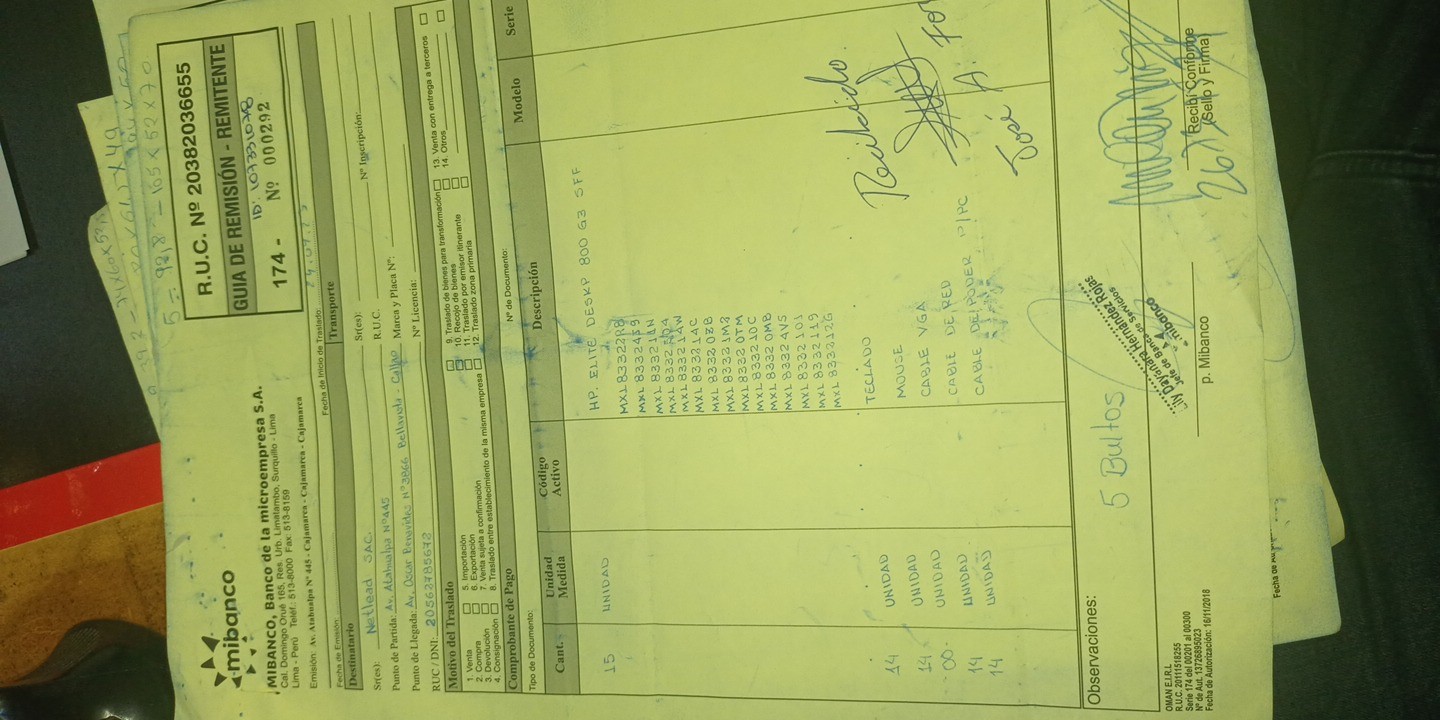 mibanco
MIBANCO, Banco de la microempresa S.A.
Cal. Domingo Orué 165, Res. Urb. Limatambo, Surquillo - Lima
Lima - Perú Telef.: 513-8000 Fax: 513-8159
Emisión: Av. Atahualpa Nº 445 - Cajamarca - Cajamarca - Cajamarca
R.U.C. Nº 20382036655
GUIA DE REMISIÓN - REMITENTE
ID: 107331078
174 - Nº 000292
Fecha de Emisión:
Fecha de Inicio de Traslado:
Destinatario
Transporte
Sr(es): Netlead SAC.
Sr(es):
Nº Inscripción:
Punto de Partida: Av. Atahualpa Nº445
R.U.C.
Punto de Llegada: Av. Oscar Benavides Nº3866 Bellavista - Callao
Marca y Placa Nº:
RUC / DNI: 20562785672
Nº Licencia:
Motivo del Traslado
1. Venta
2. Compra
3. Devolución
4. Consignación
5. Importación
6. Exportación
7. Venta sujeta a confirmación
8. Traslado entre establecimiento de la misma empresa
9. Traslado de bienes para transformación
10. Recojo de bienes
11. Traslado por emisor itinerante
12. Traslado zona primaria
13. Venta con entrega a terceros
14. Otros
Comprobante de Pago
Tipo de Documento:
Nº de Documento:
Cant. Unidad Medida Código Activo Descripción Modelo Serie
15 UNIDAD HP. ELITE DESKP 800 G3 SFF
MXL 83324S9
MXL 833214W
MXL 833214C
MXL 8332 0ZB
MXL 8332 1M2
MXL 8332 0TM
MXL 8332 10C
MXL 8332 0MB
MXL 8332 4VS
MXL 8332 101
MXL 8332 119
MXL 8332 12G
14 UNIDAD TECLADO
14 UNIDAD MOUSE
00 UNIDAD CABLE VGA
14 UNIDAD CABLE DE RED
14 UNIDAD CABLE DE PODER P/PC
Recibido
José A.
Observaciones:
5 Bultos
Lily Dayanara Hernández Rojas
Jefe de Banca de Servicios
mibanco
p. Mibanco
Recibí Conforme
(Sello y Firma)
OMAN E.I.R.L
R.U.C. 20111518255
Serie 174 del 00201 al 00300
Nº de Aut. 13726895023
Fecha de Autorización: 16/11/2018